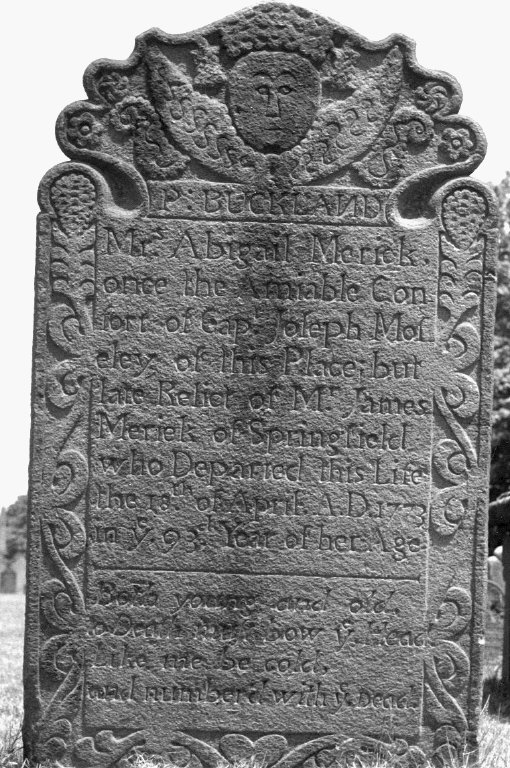 Pr. BUCKLAND
Mrs. Abigail Merick,
once the Amiable Con
ſort of Capt. Joſeph Moſ
eley, of this Place; but
late Relict of Mr. James
Merick of Springfield
who Departed this Life
the 18.th of April A.D. 1773
in ye. 93.d Year of her Age.
Both young and old,
to Death must bow ye. Head
Like me be cold,
and number'd with ye. Dead.